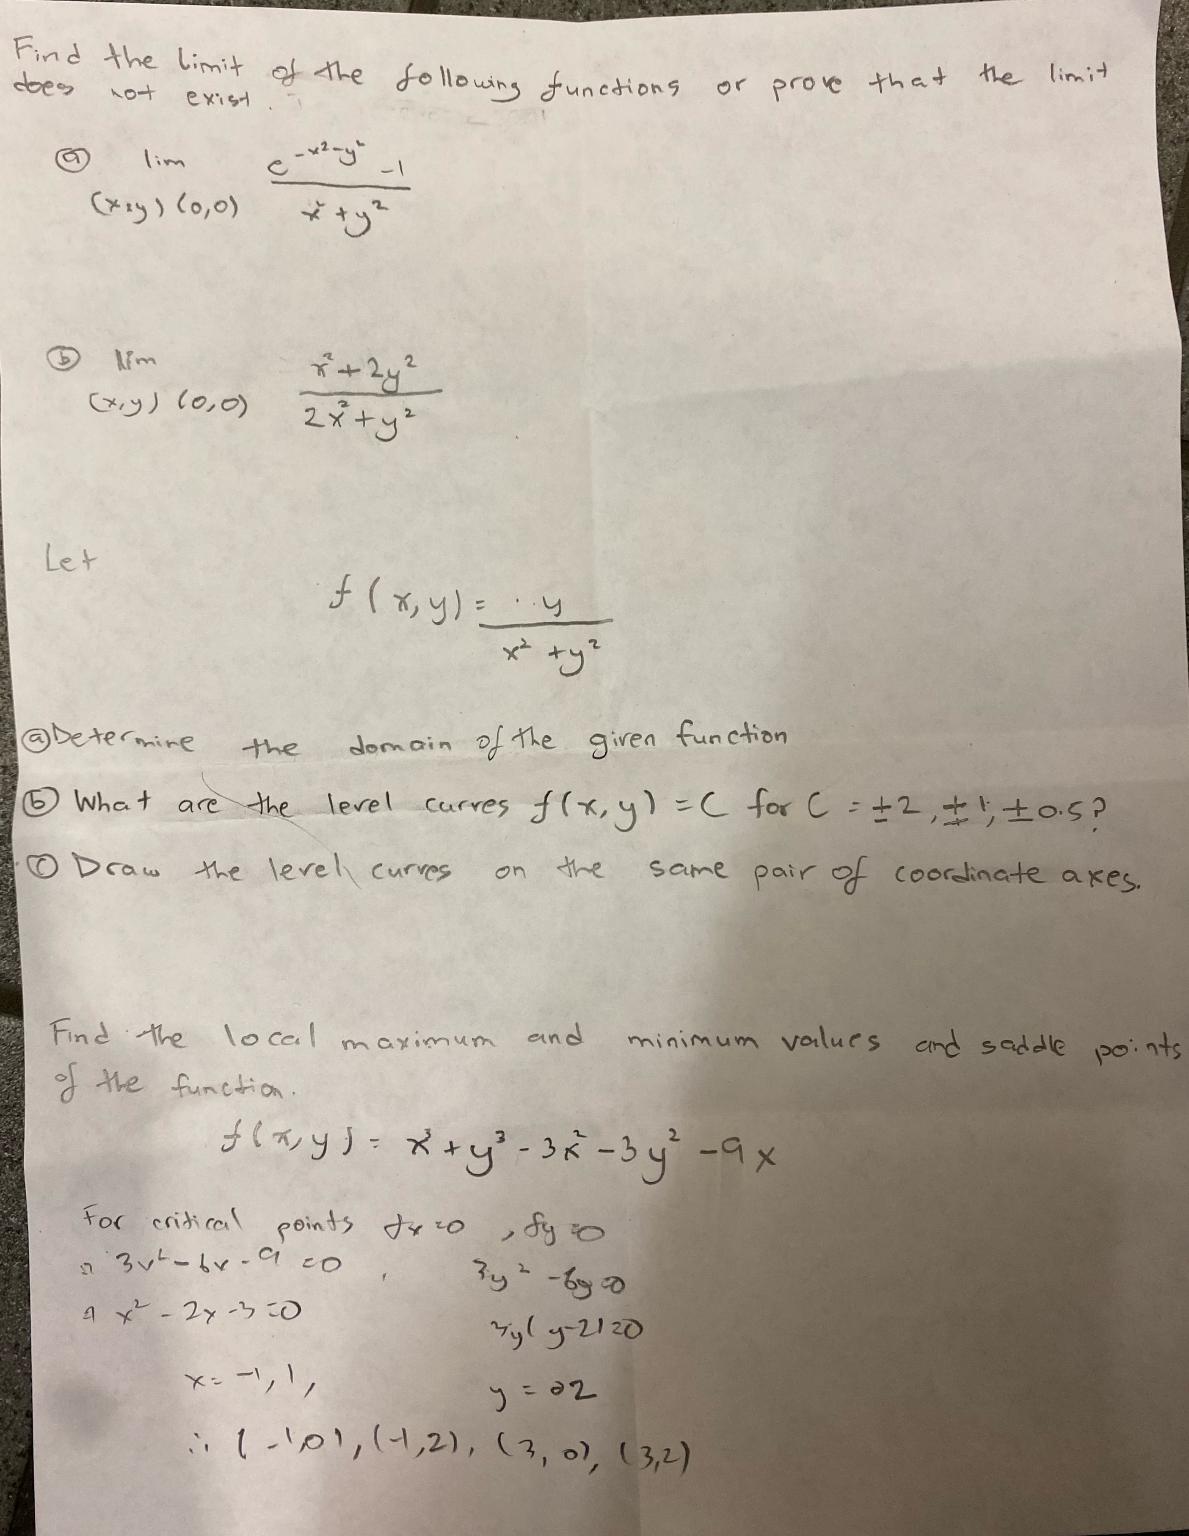 Find the limit of the following functions or prove that the limit
does not exist.
ⓐ lim e^{-x²-y²} -1
(x,y) (0,0) x²+y²
ⓑ lim x²+2y²
(x,y) (0,0) 2x²+y²
Let
f(x,y) = y
x²+y²
ⓐ Determine the domain of the given function
ⓑ What are the level curves f(x,y) = C for C = ±2, ±1, ±0.5?
ⓒ Draw the level curves on the same pair of coordinate axes.
Find the local maximum and minimum values and saddle points
of the function.
f(x,y) = x³+y³-3x²-3y²-9x
For critical points fx=0, fy=0
⇒ 3x²-6x-9=0, 3y²-6y=0
⇒ x²-2x-3=0 3y(y-2)=0
x=-1,1, y=02
∴ (-1,0), (-1,2), (3,0), (3,2)